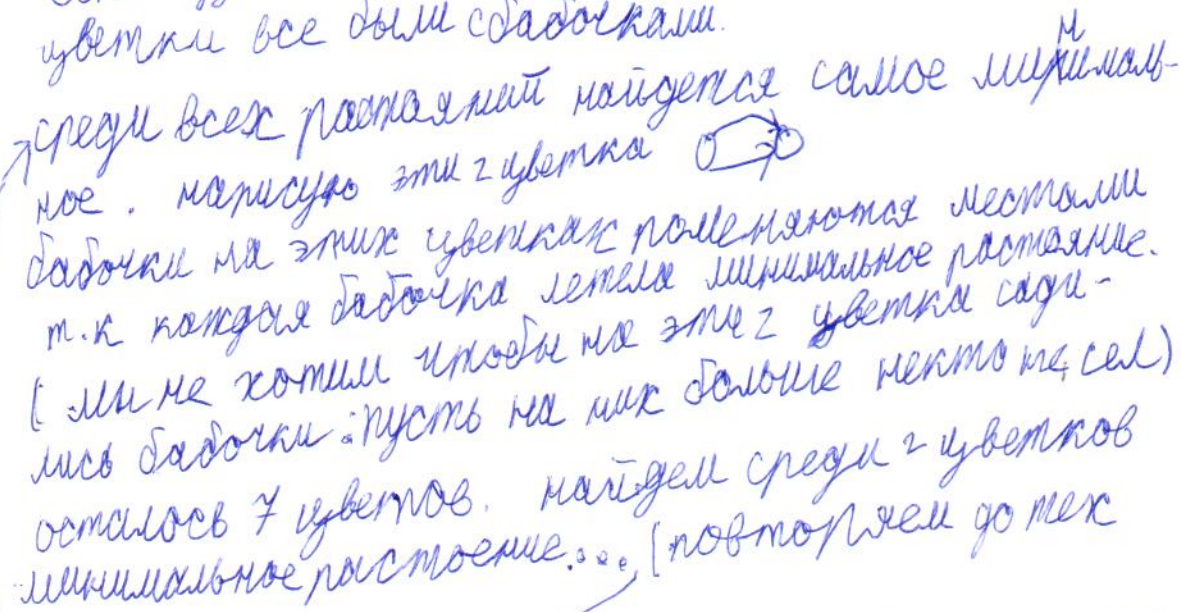 цветки все были с бабочками.
среди всех растояний найдется самое минималь-
ное. нарисую эти 2 цветка
бабочки на этих цветках поменяются местами
т.к каждая бабочка летела минимальное растояние.
(мы не хотим чтобы на эти 2 цветка сади-
лись бабочки: пусть на них больше некто не сел)
осталось 7 цветов. найдем среди 2 цветков
минимальное растоение... (повторяем до тех